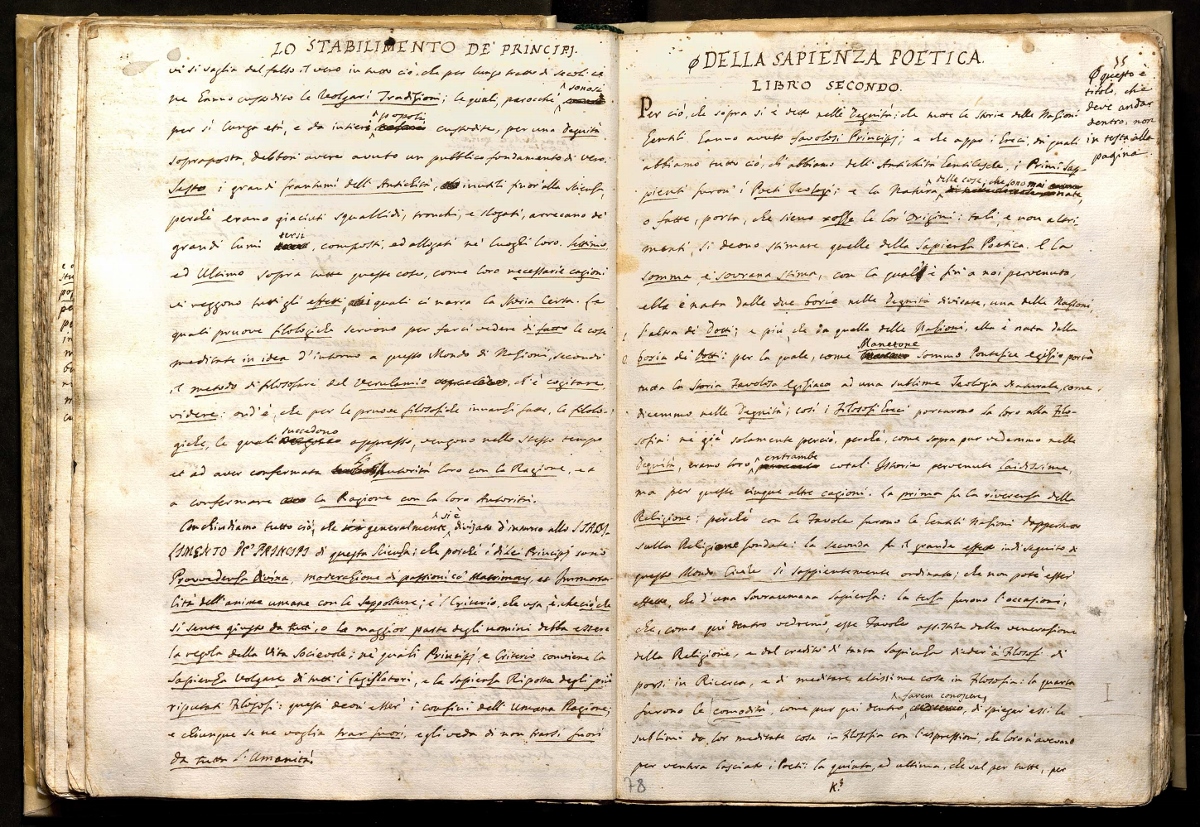 LO STABILIMENTO DE' PRINCIPJ.
vi si voglia del falso il vero in tutto ciò, che per lungo tratto di secoli ci
ne hanno custodito le Volgari Tradizioni; le quali, perocchè sonosi
per sì lunga età, e da intieri popoli custodite, per una Degnità
sopraposta, debbon avere avuto un pubblico fondamento di vero.
Sesto i grandi frantumi dell'Antichità, inutili finor alla Scienza
perchè erano giaciuti squallidi, tronchi, e slogati, arrecano de'
grandi lumi tersi, composti, ed allogati ne' luoghi loro. Settimo,
ed Ultimo sopra tutte queste cose, come loro necessarie cagioni
vi reggono tutti gli effetti, quali ci narra la Storia Certa. Le
quali pruove filologiche servono per farci vedere di fatto le cose
meditate in idea d'intorno a questo Mondo di Nazioni, secondo
il metodo di filosofare del Verulamio, ch'è cogitare,
videre: ond'è, che per le pruove filosofiche innanzi fatte, le filolo-
giche, le quali succedono appresso, vengono nello stesso tempo
et ad aver confermata l'autorità loro con la Ragione, et
a confermare la Ragione con la loro Autorità.
Conchiudiamo tutto ciò, che generalmente si è divisato d'intorno allo STABI-
LIMENTO DE' PRINCIPJ di questa Scienza; che poichè i di lei Principj sono
Provvedenza Divina, moderazione di passioni co' Matrimonj, et Immorta-
lità dell'anime umane con le seppolture; e 'l Criterio, che usa, è, che ciò, che
si sente giusto da tutti, o la maggior parte degli uomini debba essere
la regola della Vita Socievole; ne' quali Principj, e Criterio conviene la
Sapienza Volgare di tutti i Legislatori, e la Sapienza Riposta degli più
riputati Filosofi: questi deon esser i confini dell'Umana Ragione,
e chiunque se ne voglia trar fuori, egli veda di non trarsi fuori
da tutta l'Umanità.
φ DELLA SAPIENZA POETICA.
LIBRO SECONDO.
Per ciò, che sopra si è detto nelle Degnità; che tutte le Storie delle Nazioni
Gentili hanno avuto favolosi Principj; e che appo i Greci, da' quali
abbiamo tutto ciò, ch'abbiamo dell'Antichità Gentilesche, i Primi Sap-
pienti furon' i Poeti Teologi; e la Natura delle cose, che sono mai nate,
o fatte, porta, che sieno rozze le lor' Origini: tali, e non altri-
menti si deono stimare quelle della Sapienza Poetica. E la
somma, e sovrana stima, con la qual è fin' a noi pervenuta,
ella è nata dalle due borie nelle Degnità divisate, una delle Nazioni,
l'altra de' Dotti; e più, che da quella delle Nazioni, ella è nata dalla
boria de' Dotti: per la quale, come Manetone Sommo Pontefice egizio portò
tutta la Storia Favolosa Egiziaca ad una sublime Teologia Naturale, come
dicemmo nelle Degnità; così i Filosofi Greci portarono la loro alla Filo-
sofia: nè già solamente perciò, perchè, come sopra pur vedemmo nelle
Degnità, erano loro entrambe cotal' Istorie pervenute laidissime,
ma per queste cinque altre cagioni. La prima fu la riverenza della
Religione: perchè con le Favole furono le Gentili Nazioni dapertutto
sulla Religione fondate: la seconda fu il grande effetto indi seguito di
questo Mondo Civile sì sappientemente ordinato; che non potè esser
effetto, che d'una Sovraumana Sapienza: la terza furono l'occasioni,
che, come qui dentro vedremo, esse Favole assistite dalla venerazione
della Religione, e dal credito di tanta Sapienza dieder' a' Filosofi di
porsi in Ricerca, e di meditare altissime cose in Filosofia: la quarta
furono le comodità, come pur qui dentro farem conoscere, di spiegar essi le
sublimi da lor meditate cose in Filosofia con l'espressioni, che loro n'avevano
per ventura lasciato i Poeti: la quinta, ed ultima, che val per tutte, per
K.3
78
φ questo è
titolo, che
deve andar
dentro, non
in testa alla
pagina